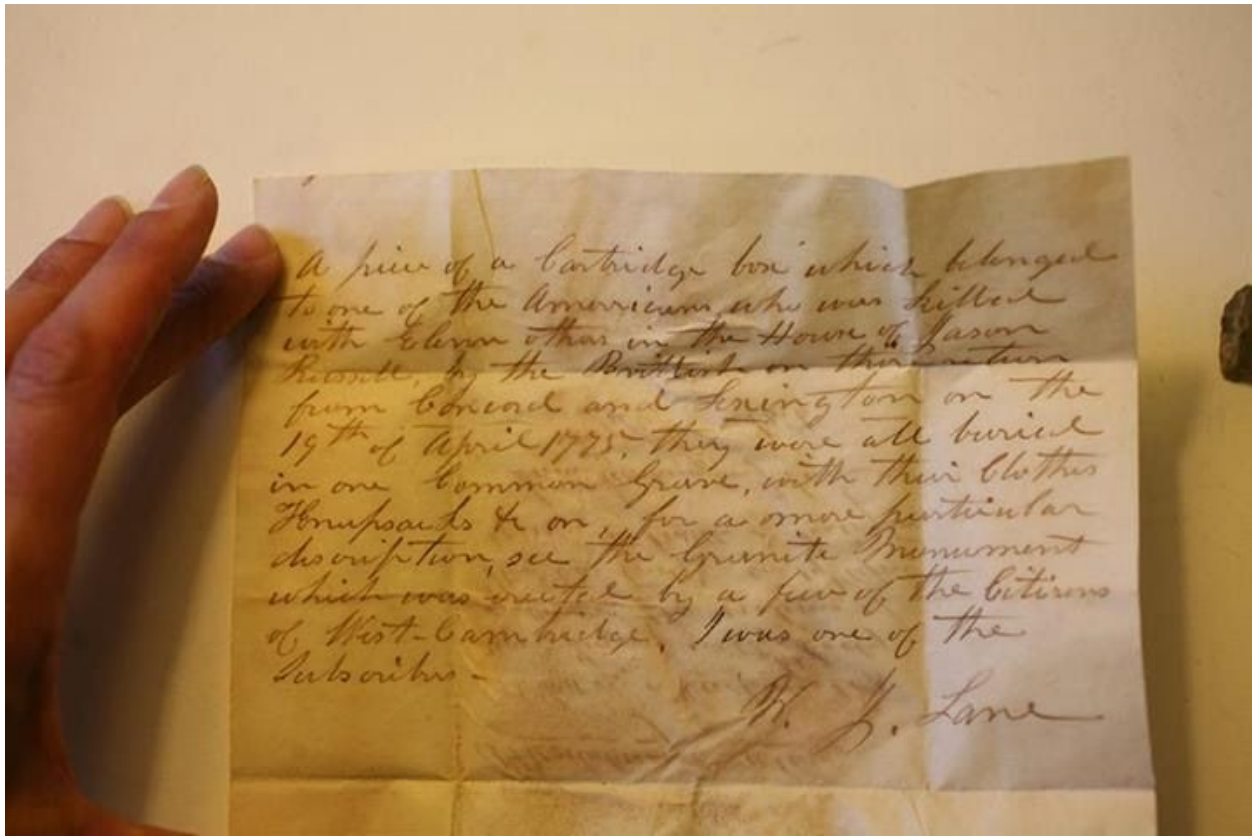 A piece of a Cartridge box which belonged
to one of the Americans, who was killed
with Eleven others in the House of Jason
Russell, by the Brittish on their return
from Concord and Lexington on the
19th of April 1775, they were all buried
in one Common Grave, with their Clothes
& on, for a more particular
discription, see the Granite Monument
which was erected by a few of the Citizens
of West-Cambridge, I was one of the
Subscribers -
Lane